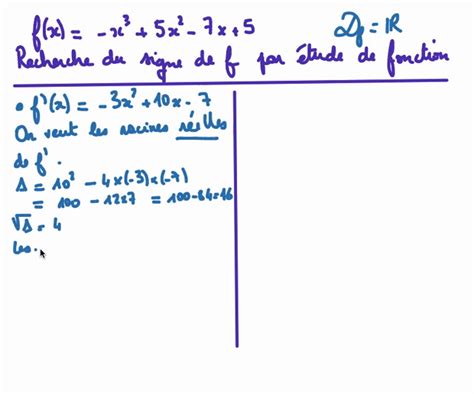 f(x) = -x³ + 5x² - 7x + 5    D_f = ℝ
Recherche du signe de f par étude de fonction
• f'(x) = -3x² + 10x - 7
On veut les racines réelles
de f'.
Δ = 10² - 4×(-3)×(-7)
= 100 - 12×7 = 100-84=16
√Δ = 4
Les